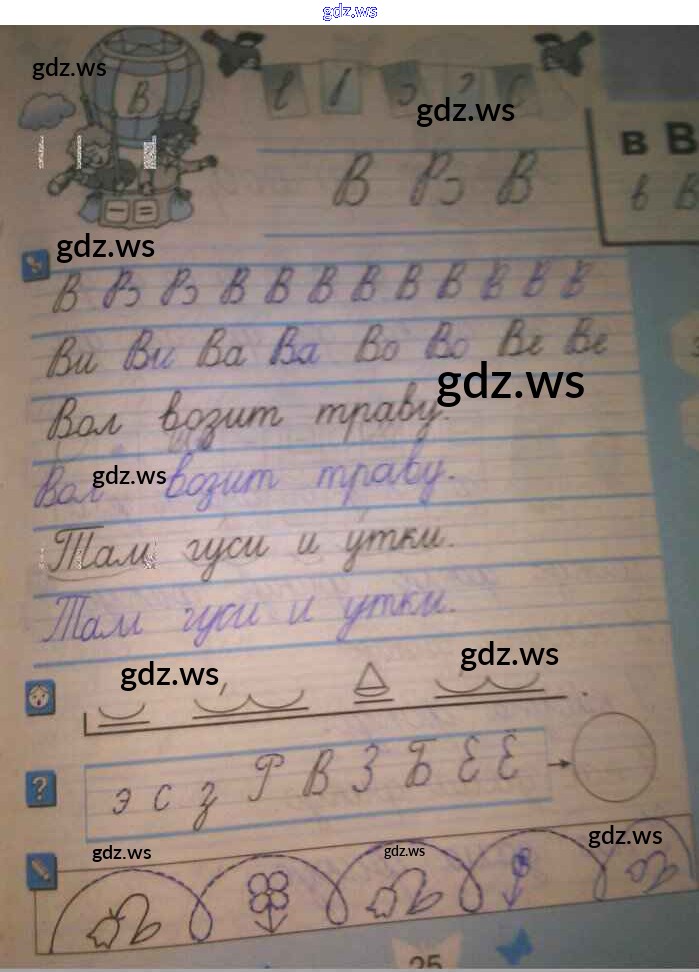 gdz.ws
gdz.ws
В
gdz.ws
в В
в В
В Рз В
gdz.ws
В Рз Рз В В В В В В В В В
Ви Ви Ва Ва Во Во Ве Ве
gdz.ws
Вол возит траву.
gdz.ws
Вол возит траву.
Там гуси и утки.
Там гуси и утки.
gdz.ws
gdz.ws
?
э с з Р В З Б Е Ё
gdz.ws
gdz.ws
gdz.ws
25